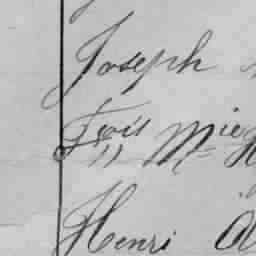 Joseph
Fois Mie
Henri